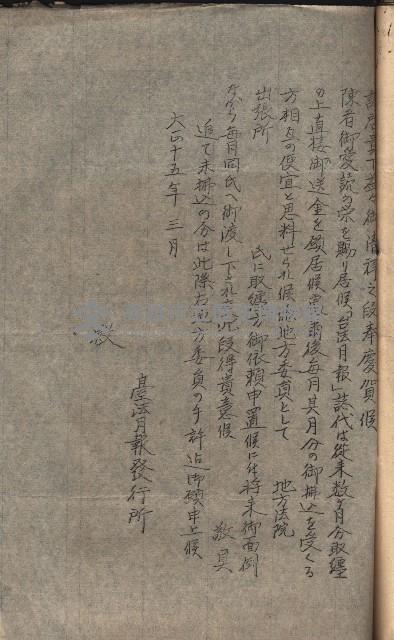 高屋貴下益々御清祥之段奉慶賀候
陳者御愛読の栄を賜り居候「台法月報」誌代は従来数ヶ月分取纏
の上直接御送金を願居候處爾後毎月其月分の御拂込を受くる
方相互の便宜と思料せられ候ニ付地方委員として　地方法院
出張所　氏に取纏め方御依頼申置候に付将来御面倒
ながら毎月同氏へ御渡し下され度此段得貴意候　敬具
追て未拂込の分は此際右地方委員の手許迄御願申上候
大正十五年　三月
臺法月報發行所
殿